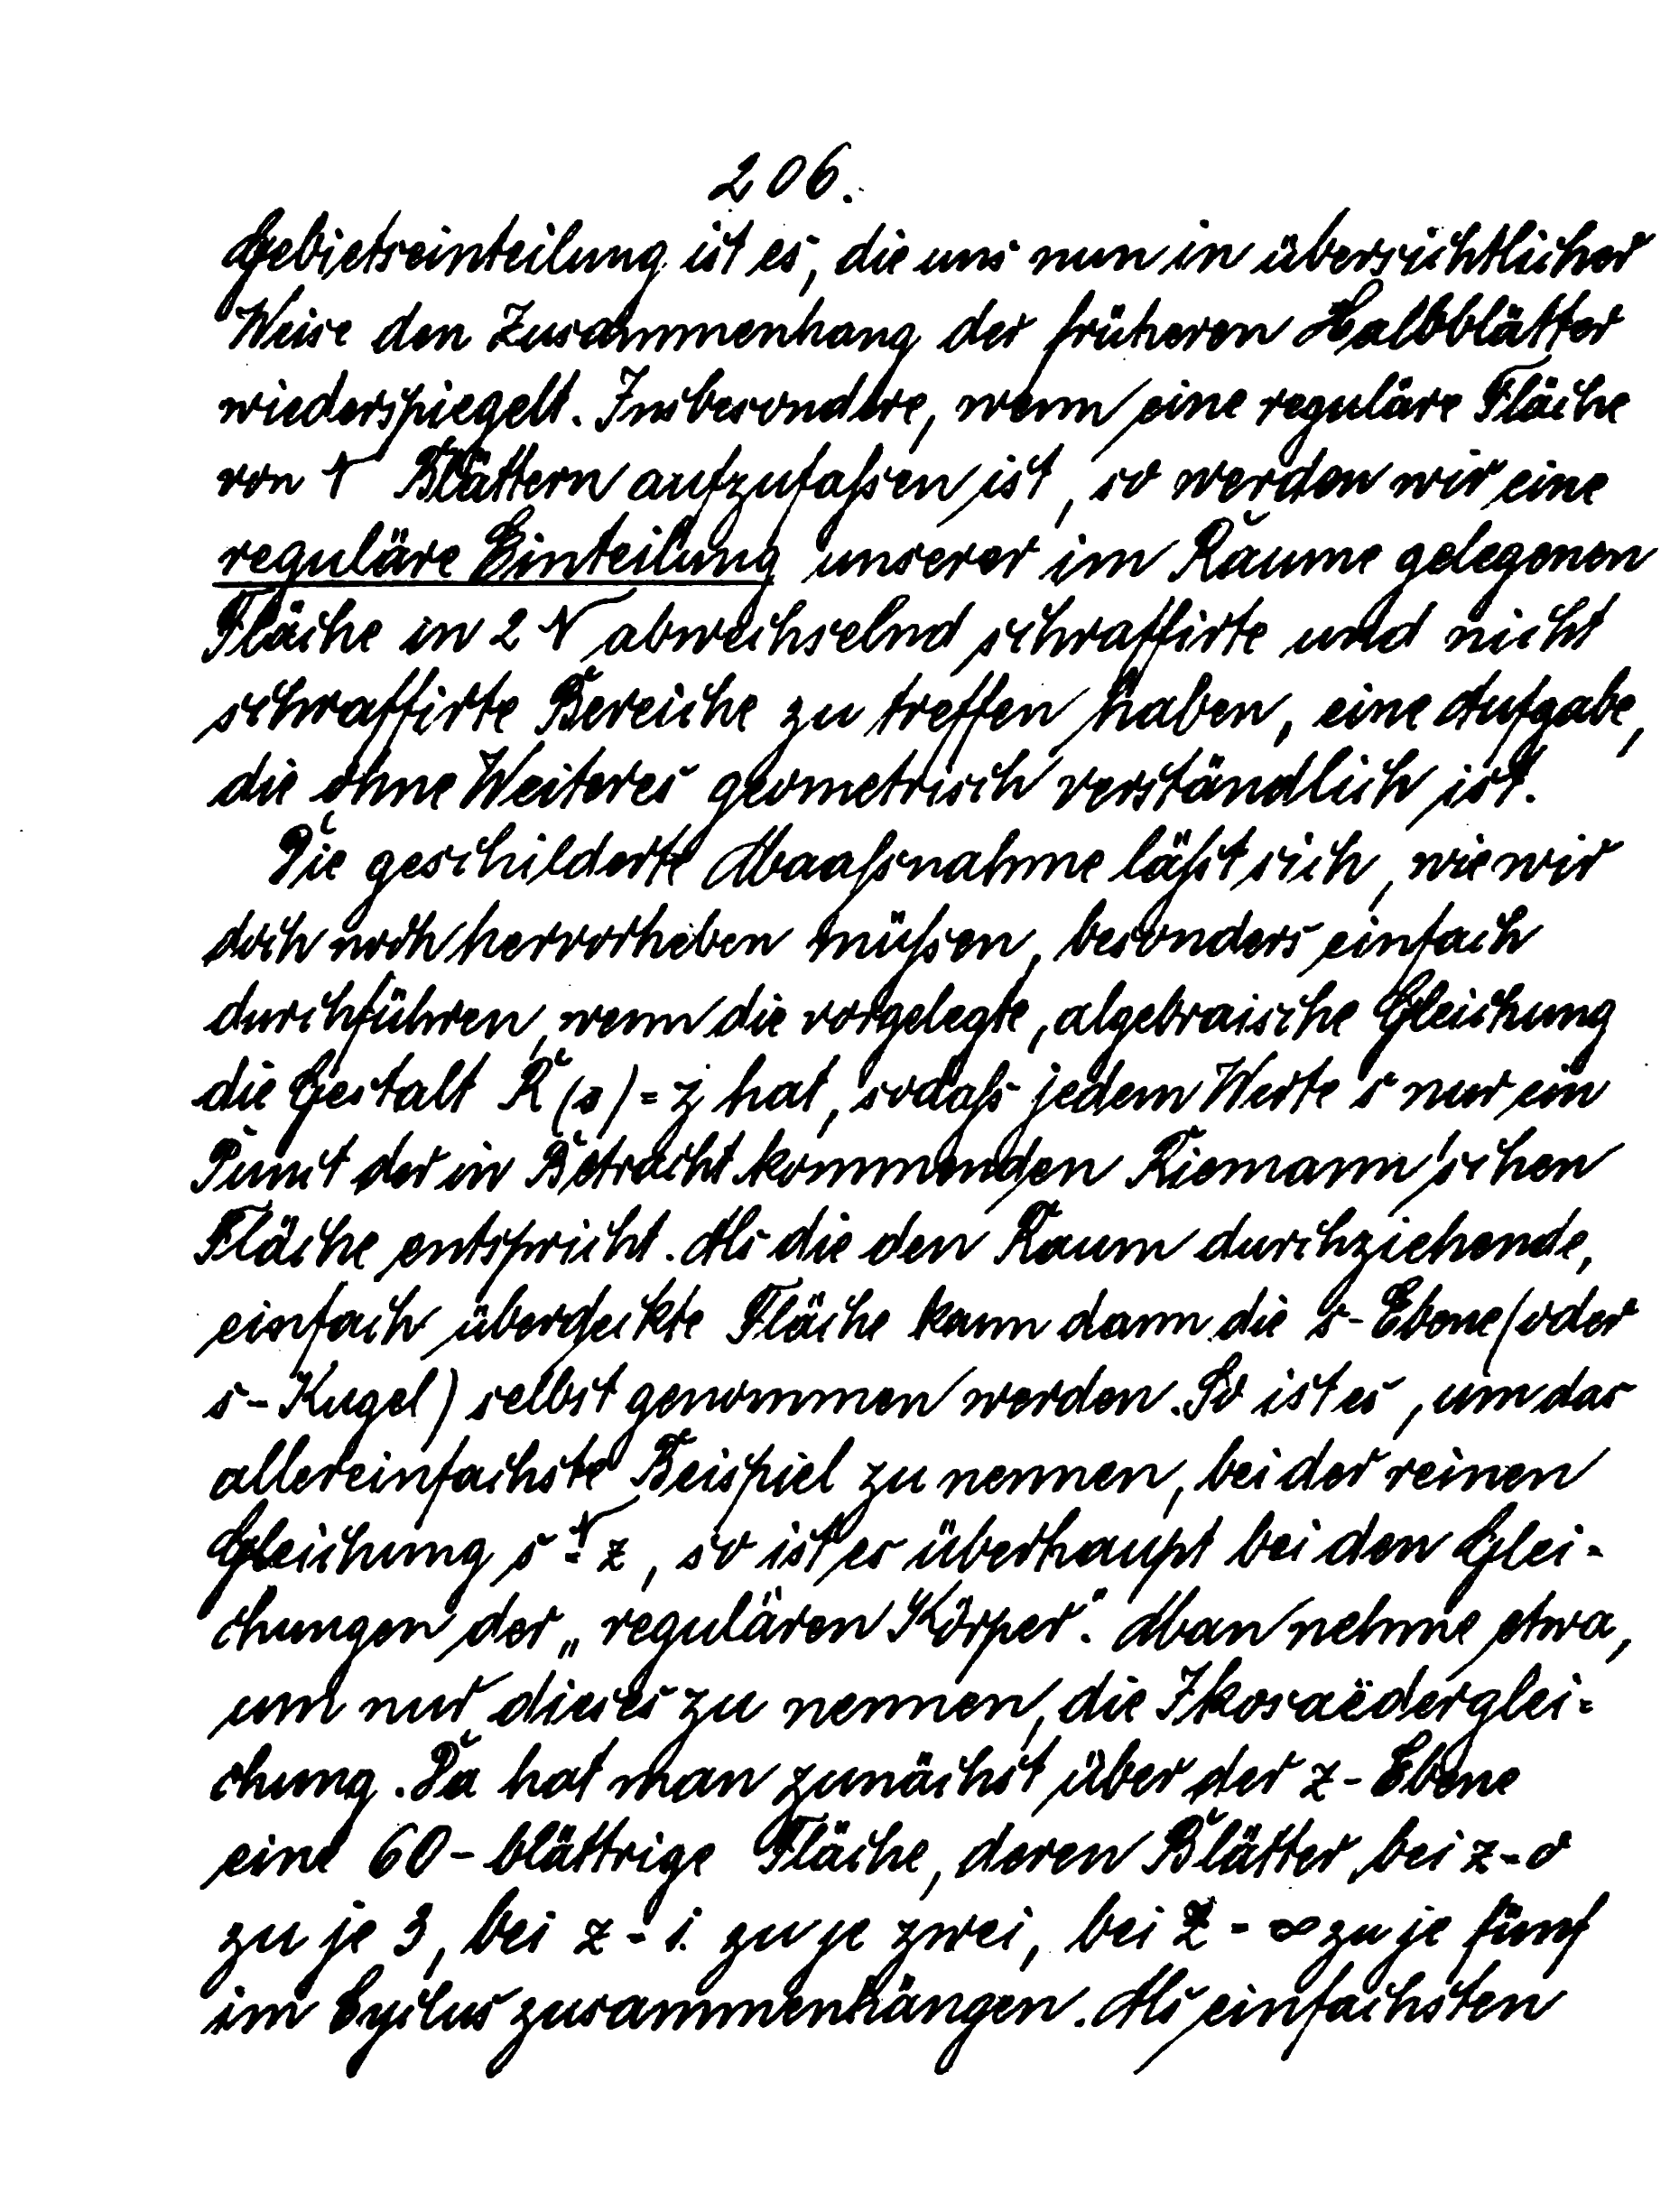 206.
Gebietseinteilung ist es, die uns nun in übersichtlicher
Weise den Zusammenhang der früheren Halbblätter
wiederspiegelt. Insbesondere, wenn eine reguläre Fläche
von N Blättern aufzufassen ist, so werden wir eine
reguläre Einteilung unserer im Raume gelegenen
Fläche in 2 N abwechselnd schraffirte und nicht
schraffirte Bereiche zu treffen haben, eine Aufgabe,
die ohne Weiteres geometrisch verständlich ist.
Die geschilderte Maaßnahme läßt sich, wie wir
doch noch hervorheben müßen, besonders einfach
durchführen, wenn die vorgelegte, algebraische Gleichung
die Gestalt R(s) = z hat, sodaß jedem Werte s nur ein
Punct der in Betracht kommenden Riemann'schen
Fläche entspricht. Als die den Raum durchziehende,
einfach überdeckte Fläche kann dann die s-Ebene (oder
s-Kugel) selbst genommen werden. So ist es, um das
allereinfachste Beispiel zu nennen, bei der reinen
Gleichung s^N = z, so ist es überhaupt bei den Glei-
chungen der „regulären Körper". Man nehme etwa,
um nur dieses zu nennen, die Ikosaëderglei-
chung. Da hat man zunächst über der z-Ebene
eine 60-blättrige Fläche, deren Blätter bei z = 0
zu je 3, bei z = 1. zu je zwei, bei z = ∞ zu je fünf
im Cyclus zusammenhängen. Als einfachsten